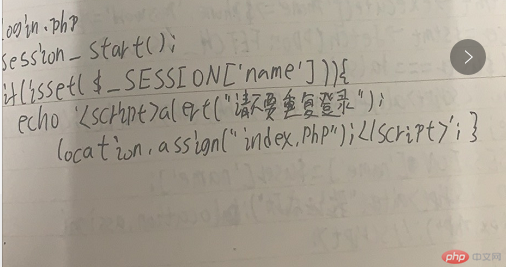 login.php
session_start();
if(isset($_SESSION['name'])){
echo '<script>alert("请不要重复登录");
location.assign("index.php");</script>'; }
php 中文网